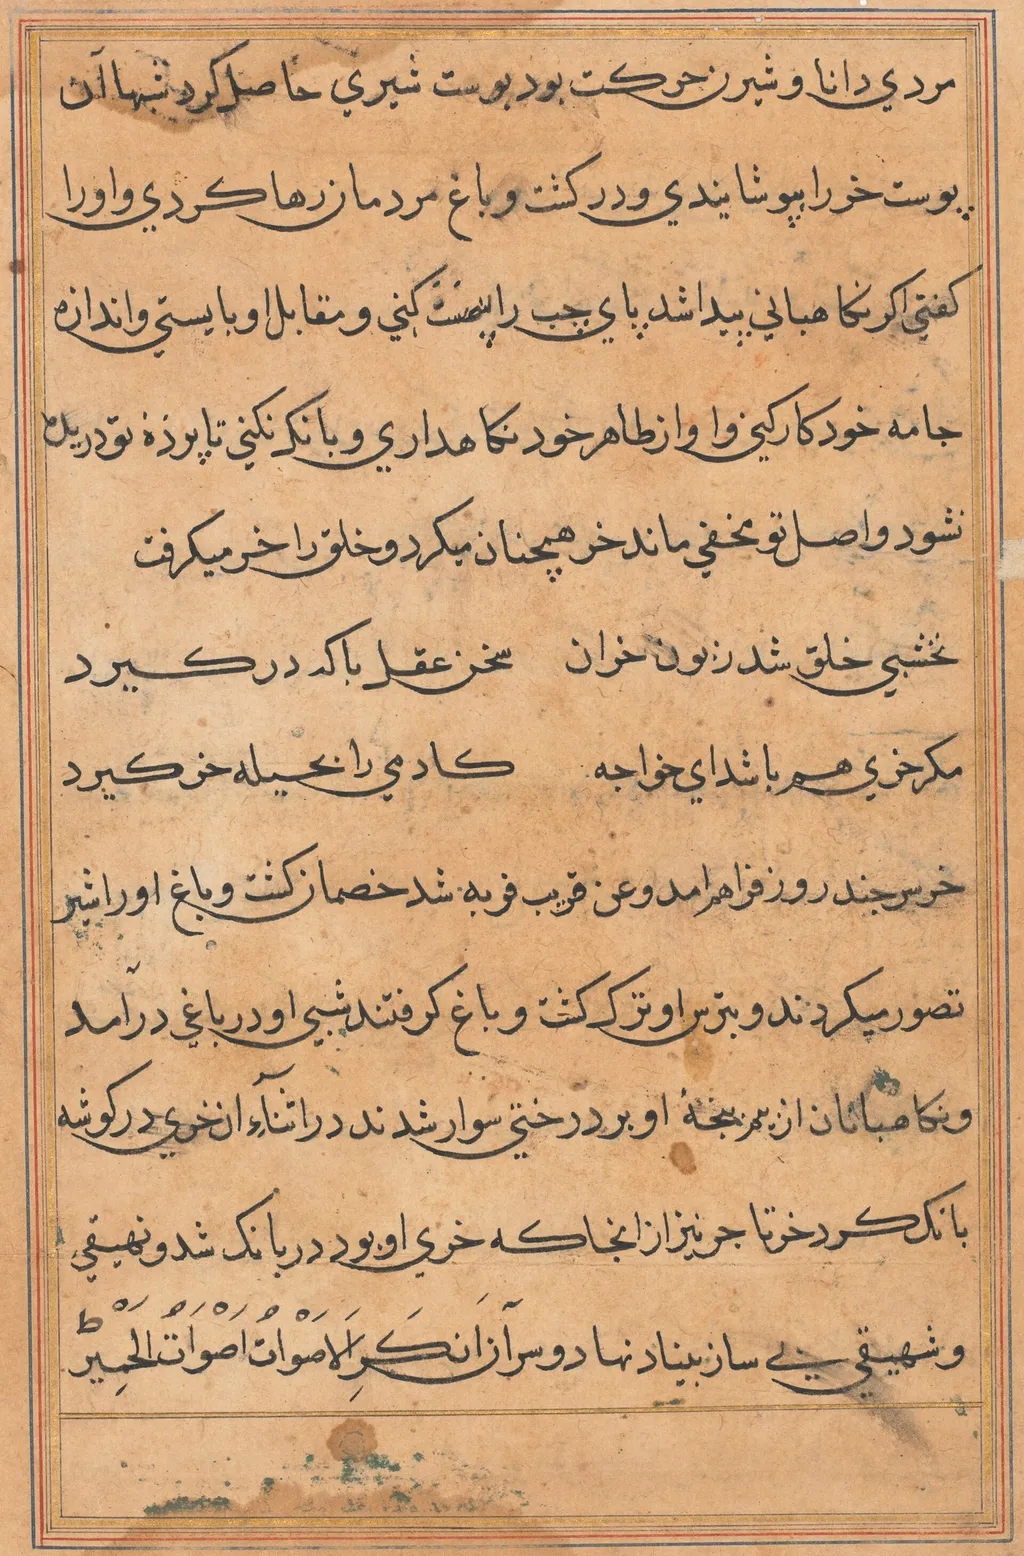 مردي دانا و شيرن حركت بود پوست شيري حاصل كرد شبها آن
پوست خر را بپوشايندي و در كشت و باغ مردمان رها كردي و او را
كفتي اكر نكاهباني پيدا شد پاي چپ را كني و مقابل او بايستي و اندازه
جامه خود كار كني و اواز ظاهر خود نكاهداري و بانك نكني تا پرده تو دريده
نشود و اصل تو مخفي ماند خر همچنان ميكرد و خلق را خر ميكرفت
نخشبي خلق شد زبون خران سخن عقل با كه در كيرد
مكر خري هم باشد اي خواجه كادمي را بحيله خر كيرد
خر سر چند روز فراهم امد و عن قريب فربه شد خصمان كشت و باغ او را شير
تصور ميكردند و بترس او ترك كشت و باغ كرفتند شبي او در باغي درآمد
و نكاهبانان از بيم پنجهٔ او بر درختي سوار شدند در اثناء ان خري در كوشه
بانك كرد خر تاجر نيز از انجا كه خري او بود در بانك شد و نهيقي
و شهيقي بي ساز بنياد نهاد و سر آن اَنكَرَ الاَصْوَاتُ اَصْوَاتُ الحَمِيْر ط